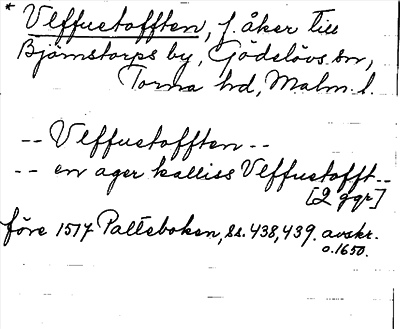 * Vlffuetofften, f. åker till
Björnstorps by, Gödelövs sn,
Torna hd, Malm. l.
-- Vlffuetofften --
-- en ager kalliss Vlffuetofft --
[2 ggr]
före 1517 Palteboken, ss. 438, 439. avskr.
o. 1650.